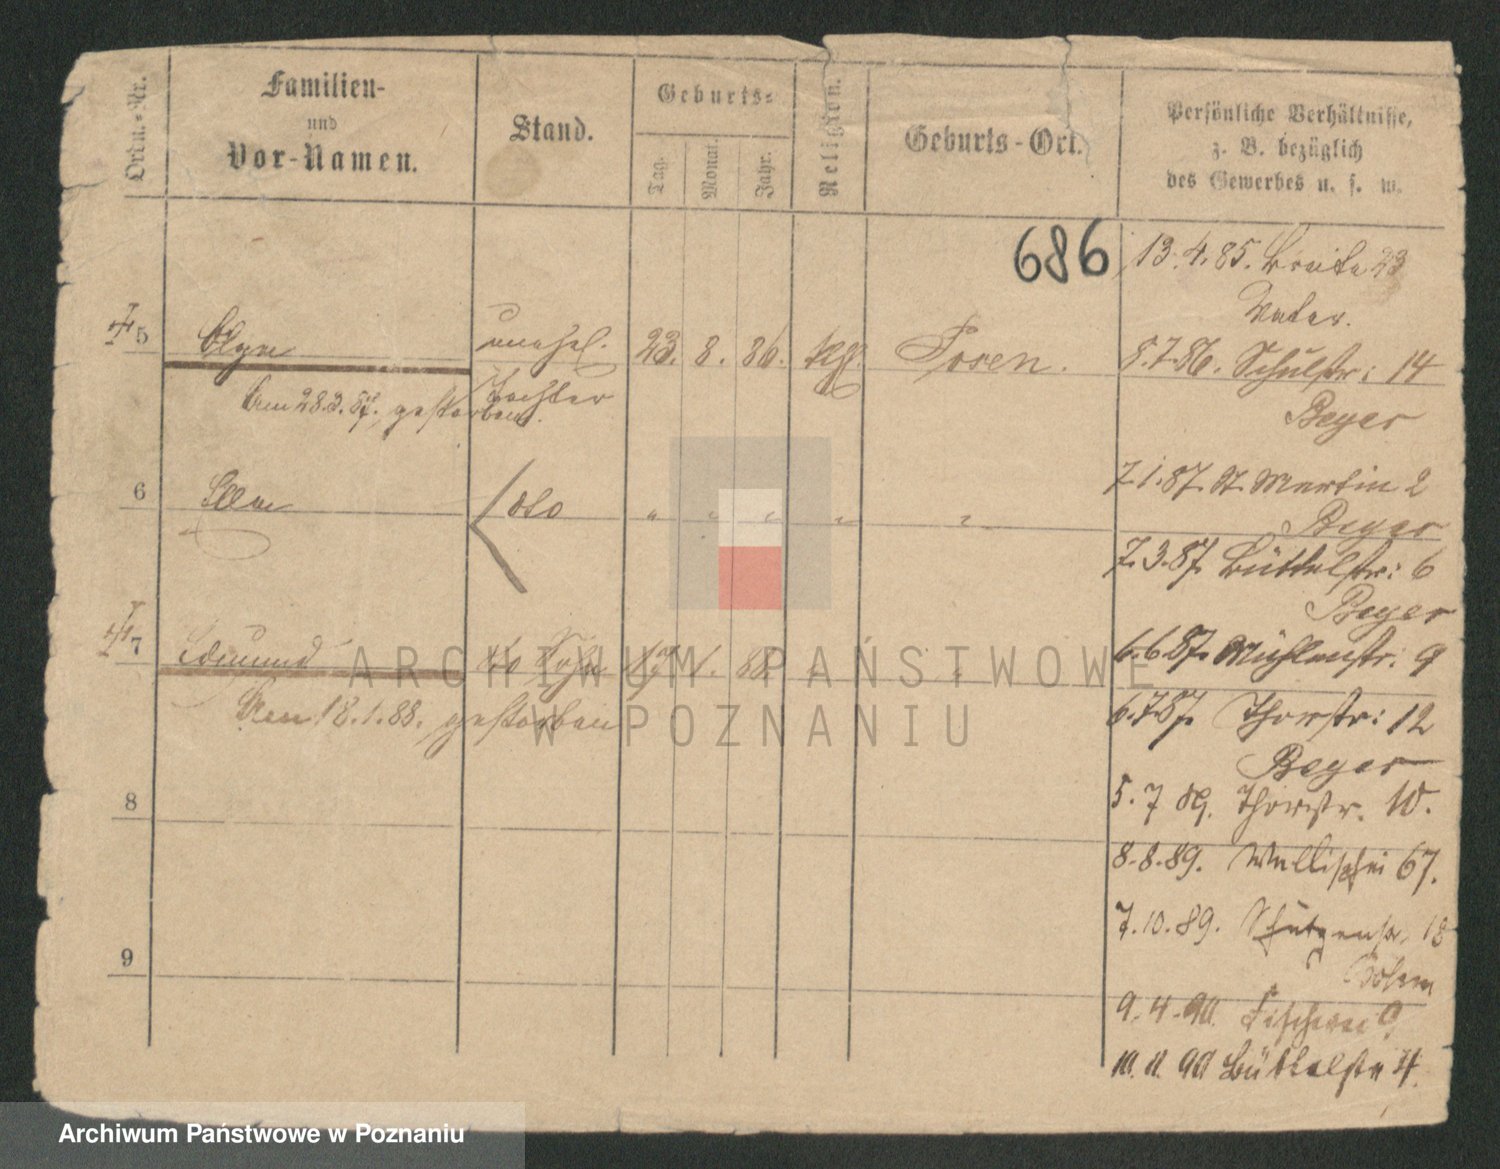 Ordn.-Nr.
Familien-
und
Vor-Namen.
Stand.
Geburts-
Tag.
Monat.
Jahr.
Religion.
Geburts-Ort.
Persönliche Verhältnisse,
z. B. bezüglich
des Gewerbes u. s. w.
686
13.4.85. Breite 23
Vater.
5 Olga unehel. 23. 8. 86. kth. Posen. 8.7.86. Schulstr: 14
Tochter
Am 28.3.87. gestorben.
Beyer
7.1.87. St. Martin 2
6 Ella dto " " " " "
Beyer
7.3.87. Büttelstr: 6
Beyer
6.6.87. Mühlenstr: 9
7 Edmund dto Sohn 1. 88. " "
Am 18.1.88. gestorben
6.7.87. Thorstr: 12
Beyer
8
5.7.89. Thorstr. 10.
8.8.89. Wallischei 67.
7.10.89. Schützenstr. 18
9
9.4.90. Fischerei 9
10.11.90 Büttelstr 4.
ARCHIWUM PAŃSTWOWE
W POZNANIU
Archiwum Państwowe w Poznaniu